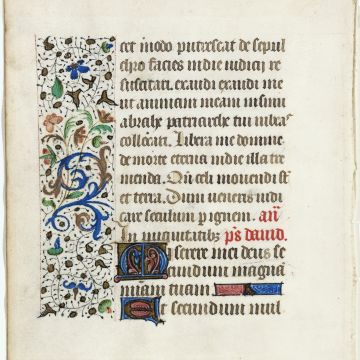 cet modo putrescat de sepul
chro facies in die iudicii re
suscitari. exaudi exaudi me
ut animam meam in sinu
abrahe patriarche tui iubeas
collocari. Libera me domine
de morte eterna in die illa tre
menda. Qn̄ celi mouendi sūt
et terra. Dum ueneris iudi
care seculum p ignem. an̄
In iniquitatibꝫ ps̄ dauid.
Miserere mei deus se
cundum magnā
miām tuam
Et secundum mul